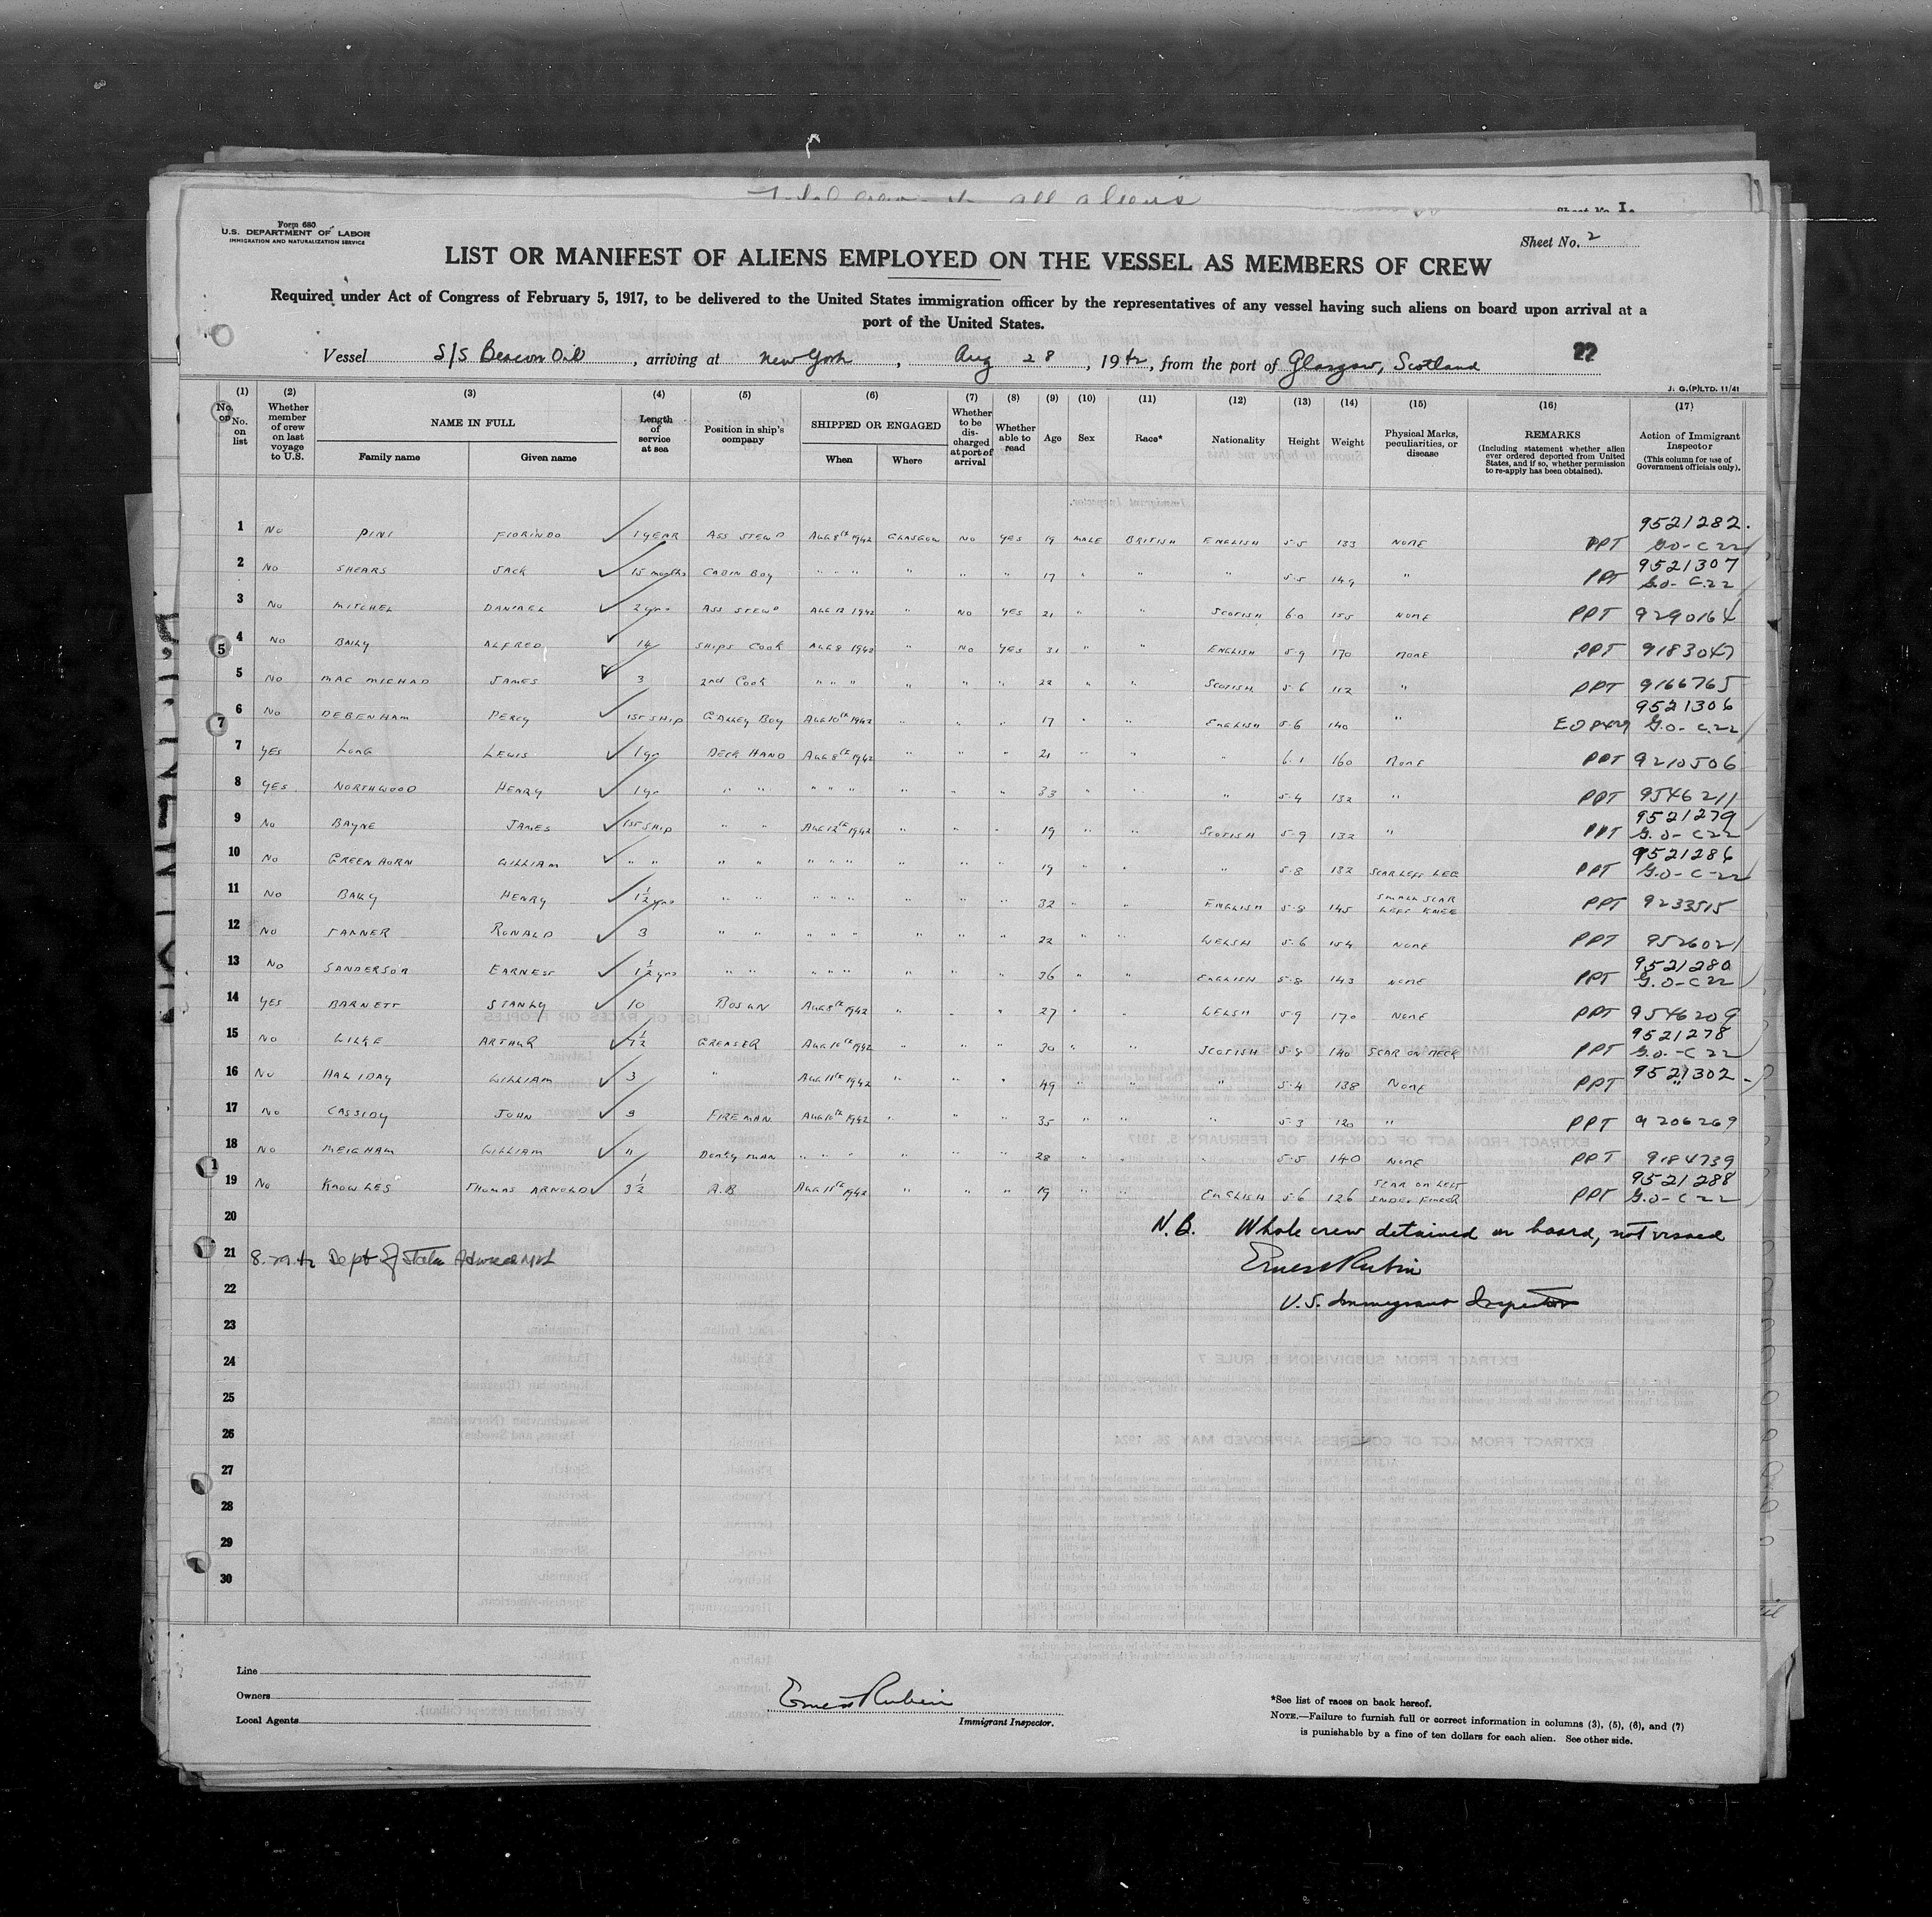 Sheet No. I.
all aliens
Form 680
U.S. DEPARTMENT OF LABOR
IMMIGRATION AND NATURALIZATION SERVICE
Sheet No. 2
LIST OR MANIFEST OF ALIENS EMPLOYED ON THE VESSEL AS MEMBERS OF CREW
Required under Act of Congress of February 5, 1917, to be delivered to the United States immigration officer by the representatives of any vessel having such aliens on board upon arrival at a
port of the United States.
Vessel S/S Beacon Oil, arriving at New York, Aug 28, 1942, from the port of Glasgow, Scotland
??
J. G.(P)LTD. 11/41
(1) (2) (3) (4) (5) (6) (7) (8) (9) (10) (11) (12) (13) (14) (15) (16) (17)
No. on list
Whether member of crew on last voyage to U.S.
NAME IN FULL
Family name Given name
Length of service at sea
Position in ship's company
SHIPPED OR ENGAGED
When Where
Whether to be discharged at port of arrival
Whether able to read
Age Sex Race* Nationality Height Weight
Physical Marks, peculiarities, or disease
REMARKS
(Including statement whether alien ever ordered deported from United States, and if so, whether permission to re-apply has been obtained).
Action of Immigrant Inspector
(This column for use of Government officials only).
1 No PINI FIORINDO 1 YEAR ASS STEWD AUG 8th 1942 GLASGOW NO YES 19 MALE BRITISH ENGLISH 5-5 133 NONE PPT 9521282. G.O-C22
2 No SHEARS JACK 15 months CABIN BOY " " " " " " 17 " " " 5-5 149 " PPT 9521307 G.O-C.22
3 No MITCHEL DANIAEL 2 yrs ASS STEWD AUG 12 1942 " NO YES 21 " " SCOTISH 6-0 155 NONE PPT 9290164
4 No BAILY ALFRED 14 SHIPS COOK AUG 8 1942 " NO YES 31 " " ENGLISH 5-9 170 NONE PPT 9183047
5 No MAC MICHAD JAMES 3 2nd COOK " " " " " " 22 " " SCOTISH 5-6 112 " PPT 9166765
6 No DEBENHAM PERCY 1ST SHIP GALLEY BOY AUG 10th 1942 " " " 17 " " ENGLISH 5-6 140 " 9521306 G.O-C.22
7 YES LONG LEWIS 1 yr DECK HAND AUG 8th 1942 " " " 21 " " " 6-1 160 NONE PPT 9210506
8 YES NORTHWOOD HENRY 1 yr " " " " " " " " 33 " " " 5-4 132 " PPT 9546211
9 No BAYNE JAMES 1ST SHIP " " AUG 12th 1942 " " " 19 " " SCOTISH 5-9 132 " PPT 9521279 G.O-C22
10 No GREENHORN WILLIAM " " " " " " " " " " 19 " " " 5-8 132 SCAR LEFT LEG PPT 9521286 G.O-C-22
11 No BAILY HENRY 1½ yrs " " " " " " " " 32 " " ENGLISH 5-8 145 SMALL SCAR LEFT KNEE PPT 9233515
12 No TANNER RONALD 3 " " " " " " " " 22 " " WELSH 5-6 154 NONE PPT 9526021
13 No SANDERSON EARNEST 1½ yrs " " " " " " " " 36 " " ENGLISH 5-8 143 NONE PPT 9521280 G.O-C22
14 YES BARNETT STANLY 10 BOSUN AUG 8th 1942 " " " 27 " " WELSH 5-9 170 NONE PPT 9546209
15 No WILKE ARTHUR GREASER AUG 10th 1942 " " " 30 " " SCOTISH 5-8 140 SCAR ON NECK PPT 9521278 G.O.-C22
16 No HALIDAY WILLIAM 3 " AUG 11th 1942 " " " 49 " " " 5-4 138 NONE PPT 9521302 "
17 No CASSIDY JOHN 9 FIREMAN AUG 10th 1942 " " " 35 " " " 5-3 120 " PPT 9206269
18 No MEIGHAM WILLIAM " DONKY MAN " " " " " " 28 " " " 5-5 140 NONE PPT 9184739
19 No KNOWLES THOMAS ARNOLD 3½ A.B AUG 11th 1942 " " " 19 " " ENGLISH 5-6 126 SCAR ON LEFT INDEX FINGER PPT 9521288 G.O-C-22
20 N.B. Whole crew detained on board, not visaed
21 8.29.42 Dept of State Ernest Rubin
22 U.S. Immigrant Inspector
23
24
25
26
27
28
29
30
Line
Owners
Local Agents
Ernest Rubin
Immigrant Inspector.
*See list of races on back hereof.
NOTE.—Failure to furnish full or correct information in columns (3), (5), (6), and (7)
is punishable by a fine of ten dollars for each alien. See other side.